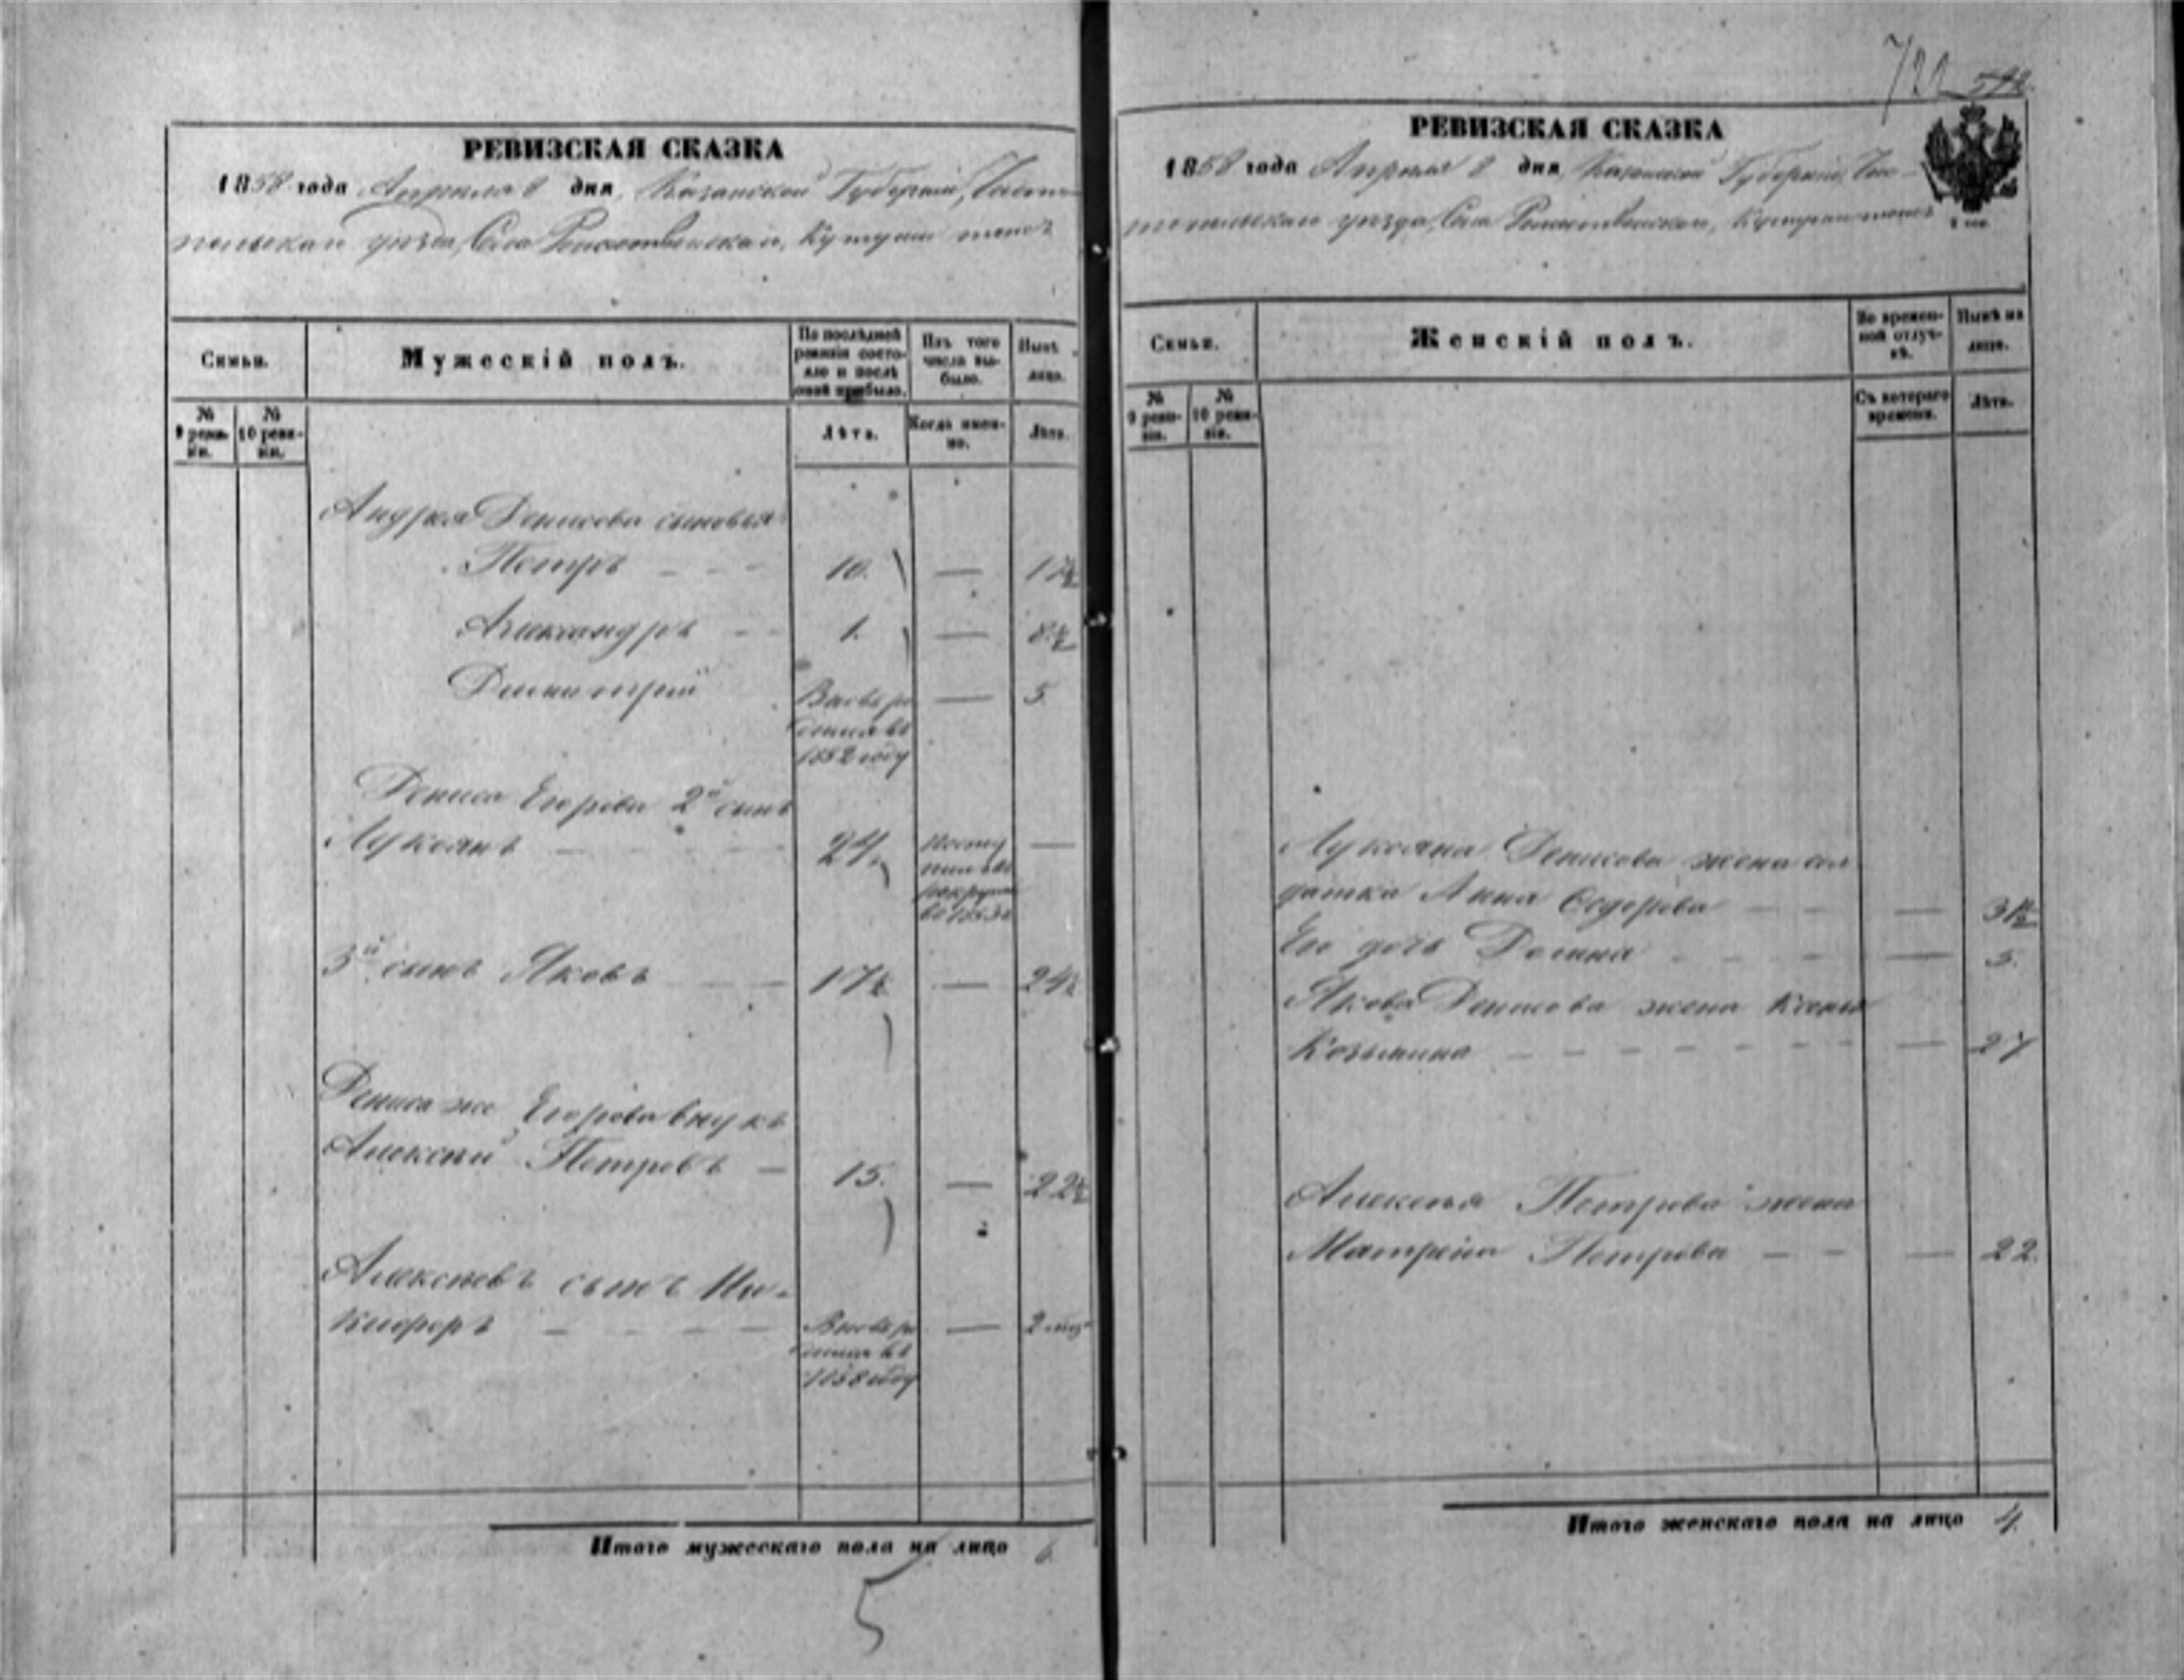 РЕВИЗСКАЯ СКАЗКА
1858 года Апреля 8 дня, Казанской Губернiи, Чисто-
польскаго уезда, Села Рождественскаго, Кутуши тожъ
Семьи.
Мужескiй полъ.
По послѣдней ревизiи состояло и послѣ оной прибыло.
Изъ того числа выбыло.
Нынѣ на лицо.
№ 9 ревизiи.
№ 10 ревизiи.
Лѣта.
Когда именно.
Лѣта.
Андрея Денисова сыновья
Петръ 10. — 17½
Александръ 1. — 8½
Димитрий — 5
Вновь ро
дился въ
1852 году
Дениса Егорова 2й сынъ
Лукоянъ 24. —
Посту
пилъ въ
рекруты
3й сынъ Яковъ 17½ — 24½
Дениса же Егорова внукъ
Алексѣй Петровъ — 15. — 22½
Алексѣевъ сынъ Ни-
кифоръ — 2 мѣс
Вновь ро
дился въ
1858 году
Итого мужескаго пола на лицо 6.
5
722 542.
РЕВИЗСКАЯ СКАЗКА
1858 года Апреля 8 дня, Казанской Губернiи, Чис-
топольскаго уезда, Села Рождественскаго, Кутуши тожъ
Семьи.
Женскiй полъ.
Во временной отлучкѣ.
Нынѣ на лицо.
№ 9 ревизiи.
№ 10 ревизiи.
Съ котораго времени.
Лѣта.
Лукояна Денисова жена сол
датка Анна Ѳедорова — 31½
Его дочь Домна — 5.
Якова Денисова жена Ксенья
Козьмина — 27
Алексѣя Петрова жена
Матрена Петрова — 22.
Итого женскаго пола на лицо 4.